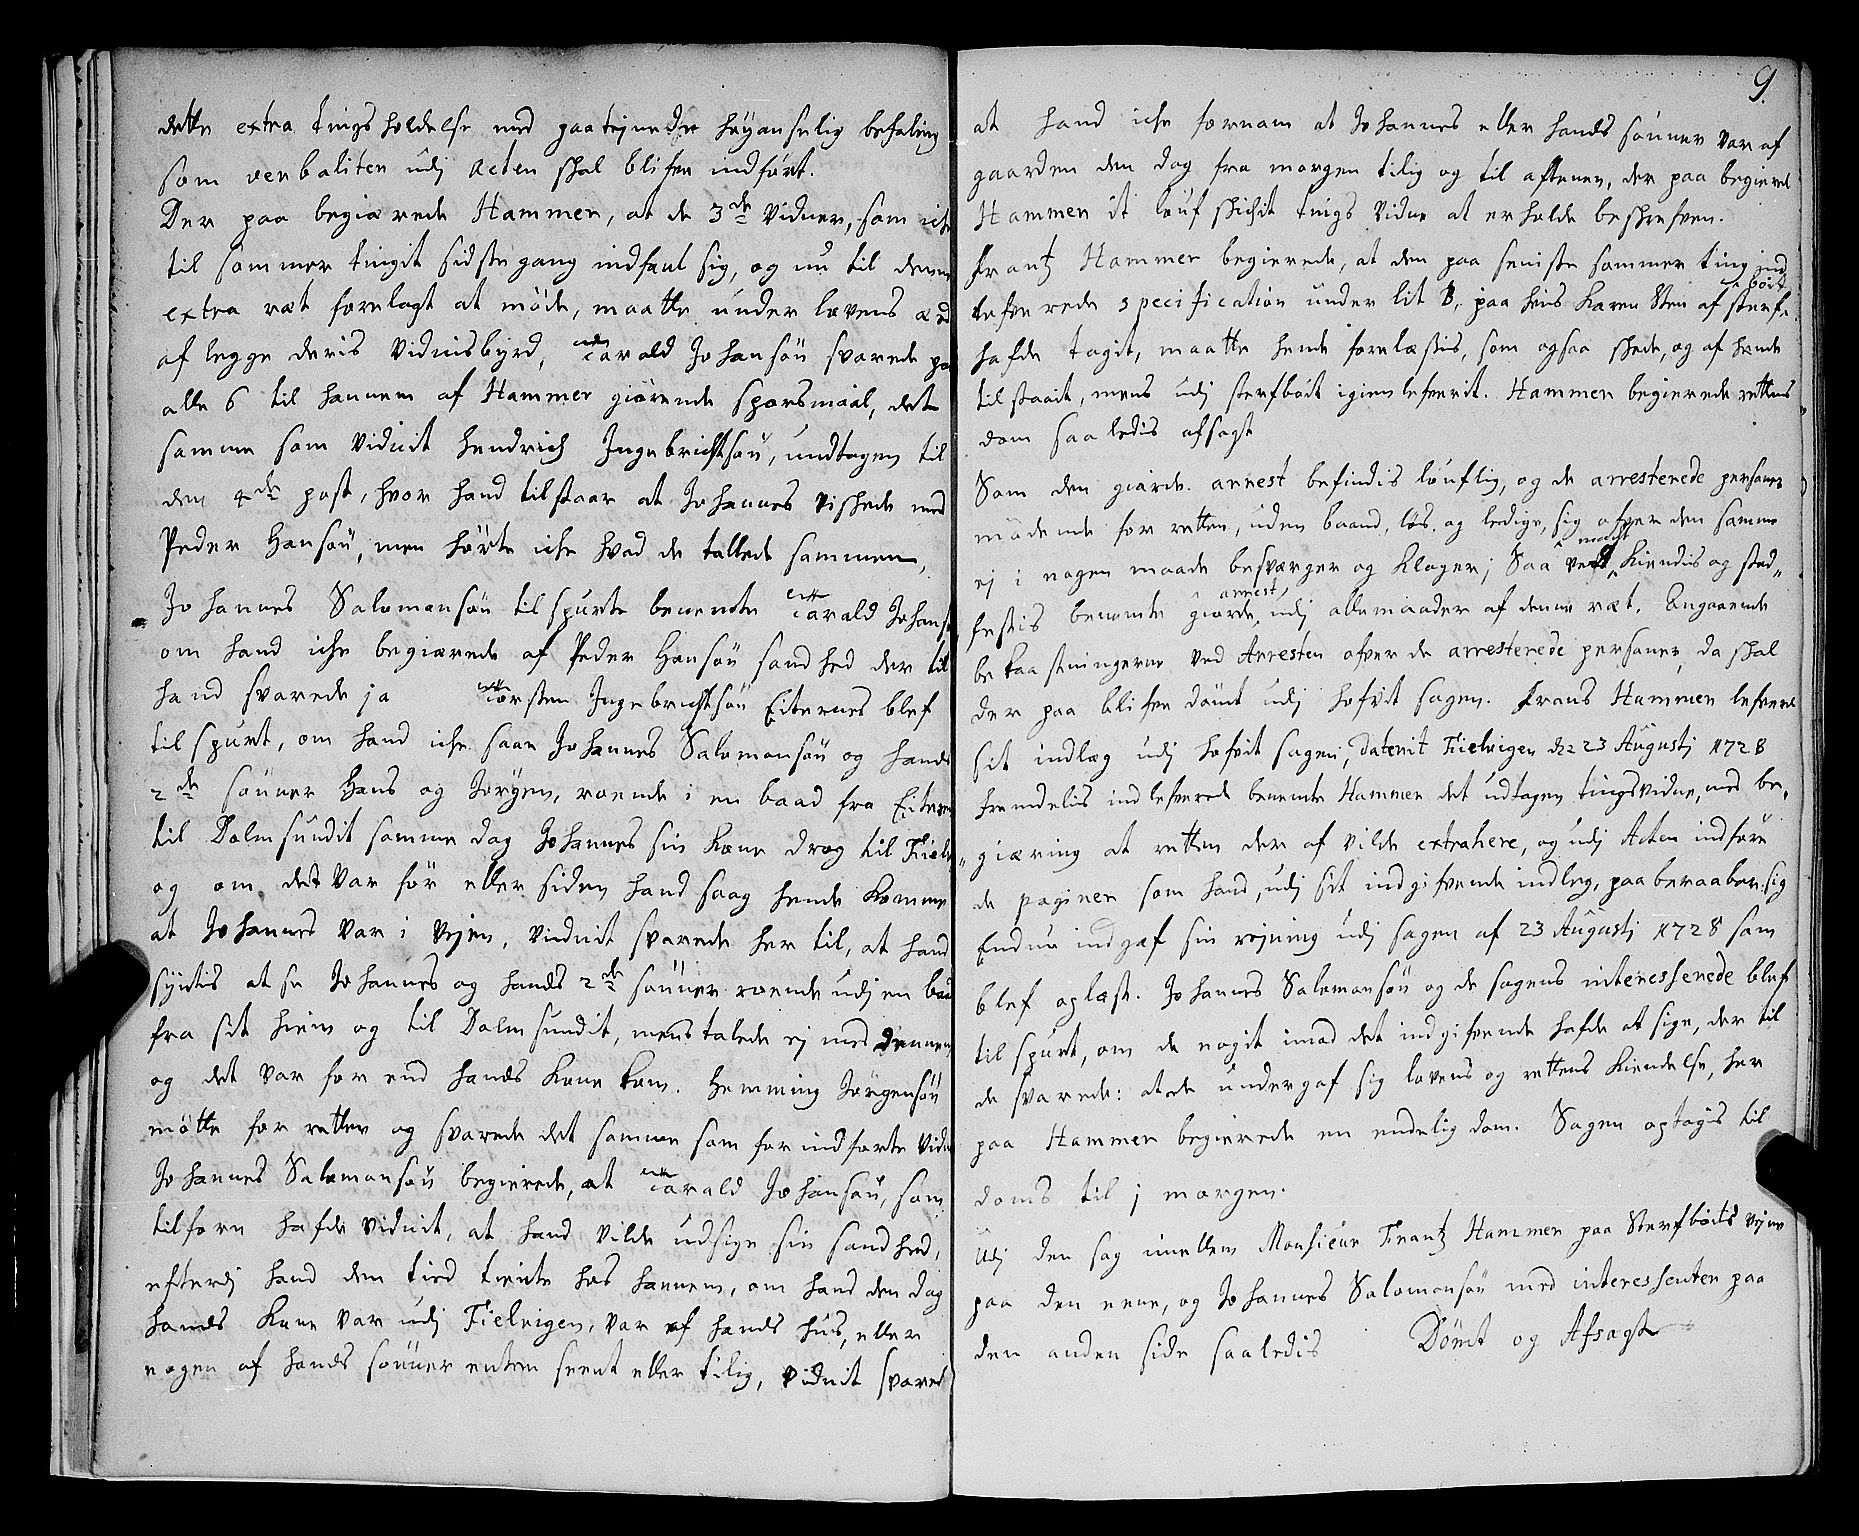 dette extra tings holdelse med paategnede høyanselig befaling
som verbaliter udj acten skal blifve indført.
Der paa begiærede Hammer, at de 3de Vidner, som iche
til sommer tingit sidste gang indfant sig, og nu til denne
extra ræt forelagt at møde, maatte under lovens æd
aflegge deris Vidnisbyrd, Tarald Johansøn svarede paa
alle 6 til hannem af Hammer giørende spørsmaal, det
samme som Vidnit Hendrich Ingebrichtsøn, undtagen til
den 4de post, hvor hand tilstaar at Johannes vishede med
Peder Hansøn, men hørte iche hvad de tallede sammen,
Johannes Salomonsøn tilspurte benente Tarald Johans:
om hand iche begiærede af Peder Hansøn sandhed der til
hand svarede ja Torsten Ingebrichtsøn Eiternes blef
tilspurt, om hand iche saae Johannes Salomonsøn og hands
2de sønner Hans og Jørgen, roende i en baad fra Eiternes
til Dolmsundit samme dag Johannes sin Kone drog til Fiel
og om det var før eller siden hand saag hende Komme
at Johannes var i Vejen, Vidnit svarede her til, at hand
syntis at se Johannes og hands 2de sønner roende udj en baad
fra sit hiem og til Dolmsundit, mens talede ej med dennem
og det var for end hands Kone kom. Hemming Jørgensøn
møtte for retten og svarede det samme som forindførte Vidne
Johannes Salomonsøn begierede, at Tarald Johansøn, som
tilforn hafde vidnit, at hand vilde udsige sin sandhed,
efterdj hand den tied tiente hos hannem, om hand den dag
hands Kone var udj Fielvigen, var af hands hus, eller
nogen af hands sønner enten seent eller tilig, Vidnit svared
9.
at hand iche fornam at Johannes eller hands sønner var af
gaarden den dag fra morgen tilig og til aftenen, der paa begiered
Hammer it louf skichit tings Vidne at erholde beskrefven.
Frantz Hammer begierede, at den paa seniste sommer ting ind
lefverede specification under lit B, paa hvis Karen Sten af sterf bört
hafde tagit, maatte hende forelæsis, som ogsaa skede, og af hende
tilstaait, mens udj sterfbödt igien lefverit. Hammer begierede rettens
dom saaledis afsagt
Som den giorde arrest befindis louflig, og de arresterede personer
mödende for retten, uden baand, lös og ledige, sig ofver den samme
ej i nogen maade besværger og Klager; Saa ved magt Kiendis og stad„
festis benemte giorde arrest, udj alle maader af denne ræt. Angaaende
bekaastningerne ved Arresten ofver de arresterede personer, da skal
der paa blifve dömt udj hofvit sagen. Frans Hammer lefvered
sit indlæg udj hofvit sagen, daterit Fielvigen d: 23 Augustj 1728
fremdelis indlefverede benemte Hammer det udtagen tingsvidne, med be„
„giæring at retten der af vilde extrahere, og udj Acten indföre
de paginer som hand, udj sit indgifvende indleg, paaberaaber sig
Endnu indgaf sin rejning udj sagen af 23 Augustj 1728 som
blef oplæst. Johannes Salomonsøn og de sagens interesserede blef
tilspurt, om de nogit imod det indgifvende hafde at sige, der til
de svarede: at de undergaf sig lovens og rettens Kiendelse, her
paa Hammer begierede en endelig dom. Sagen optagis til
doms til j morgen.
Udj den sag imellem Monsieur Frantz Hammer paa Sterfbödts Vegne
paa den eene, og Johannes Salomonsøn med interessenter paa
den anden side saaledis Dömt og Afsagt